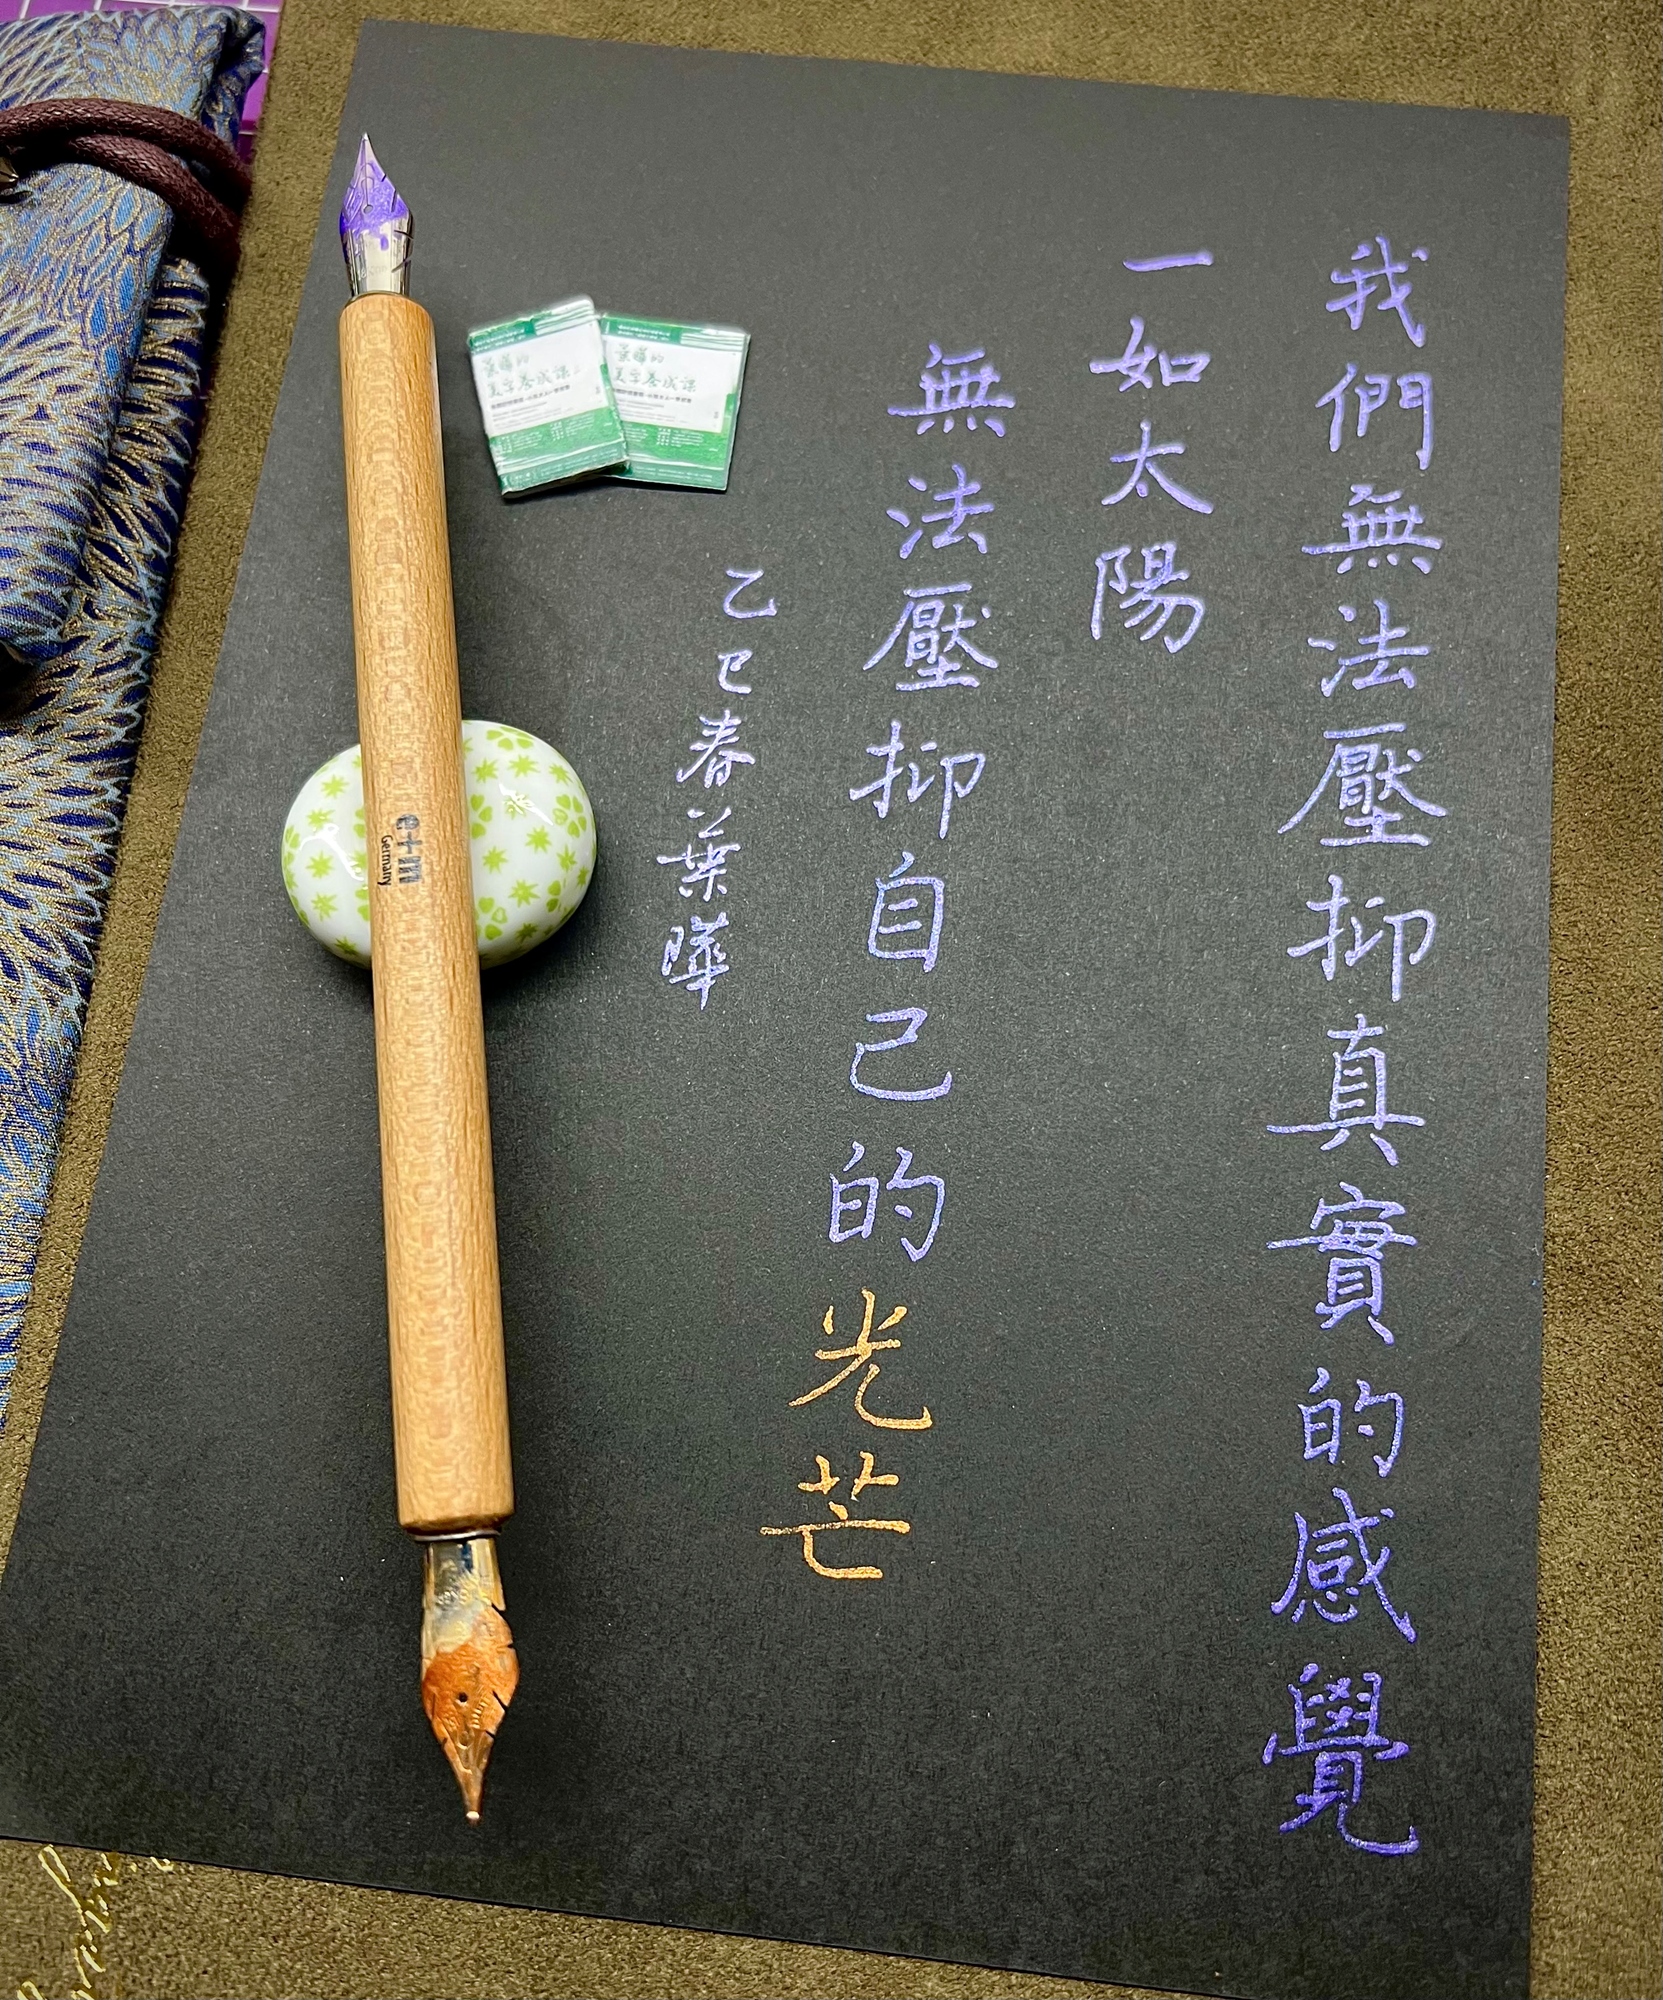 我們無法壓抑真實的感覺
一如太陽
無法壓抑自己的光芒
乙巳春葉曄
葉曄的
美字養成課
葉曄的
美字養成課
e+m
Germany